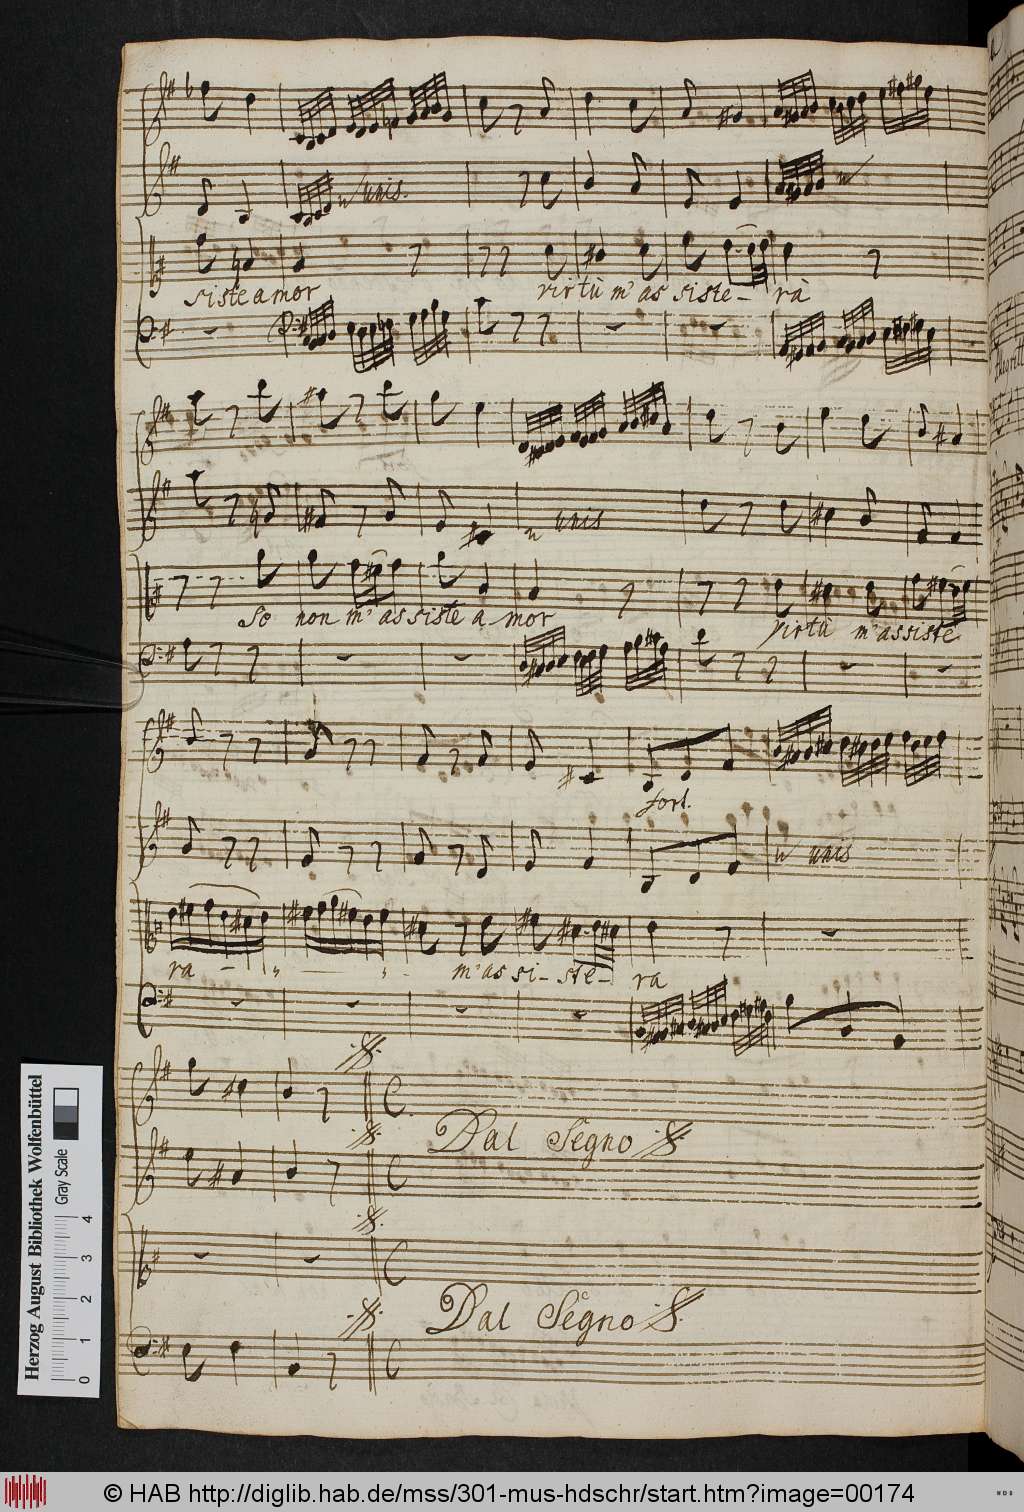 unis.
siste amor virtù m'assiste - rà
unis
So non m'assiste a mor virtù m'assiste
fort.
unis
ra - m'assi-ste- ra
Dal Segno
Dal Segno
Herzog August Bibliothek Wolfenbüttel
Gray Scale
0 1 2 3 4
© HAB http://diglib.hab.de/mss/301-mus-hdschr/start.htm?image=00174